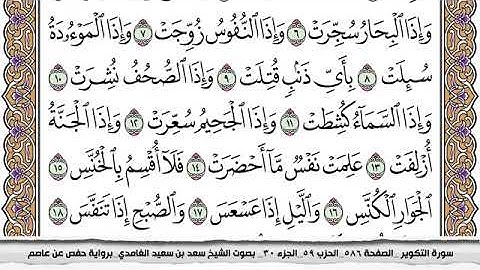 وَإِذَا ٱلۡبِحَارُ سُجِّرَتۡ ٦ وَإِذَا ٱلنُّفُوسُ زُوِّجَتۡ ٧ وَإِذَا ٱلۡمَوۡءُۥدَةُ
سُئِلَتۡ ٨ بِأَيِّ ذَنۢبٖ قُتِلَتۡ ٩ وَإِذَا ٱلصُّحُفُ نُشِرَتۡ ١٠
وَإِذَا ٱلسَّمَآءُ كُشِطَتۡ ١١ وَإِذَا ٱلۡجَحِيمُ سُعِّرَتۡ ١٢ وَإِذَا ٱلۡجَنَّةُ
أُزۡلِفَتۡ ١٣ عَلِمَتۡ نَفۡسٞ مَّآ أَحۡضَرَتۡ ١٤ فَلَآ أُقۡسِمُ بِٱلۡخُنَّسِ ١٥
ٱلۡجَوَارِ ٱلۡكُنَّسِ ١٦ وَٱلَّيۡلِ إِذَا عَسۡعَسَ ١٧ وَٱلصُّبۡحِ إِذَا تَنَفَّسَ ١٨
سورة التكوير _الصفحة ٥٨٦_ الحزب ٥٩_ الجزء ٣٠_ بصوت الشيخ سعد بن سعيد الغامدي_ برواية حفص عن عاصم